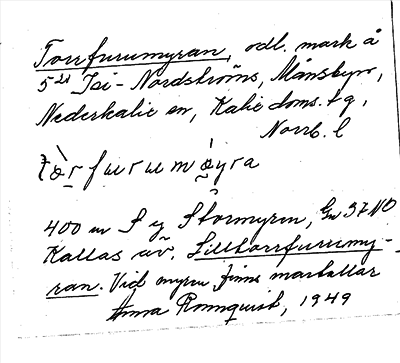 Torrfurumyran, odl. mark å
5²¹ Isi-Nordströms, Månsbyn,
Nederkalix sn, Kalix doms. tg,
Norrb. l
400 m S y Stormyrn, Gn 37 NO
Kallas äv. Lilltorrfurumy-
ran. Vid myrn finns martallar
Anna Rönnquist, 1949